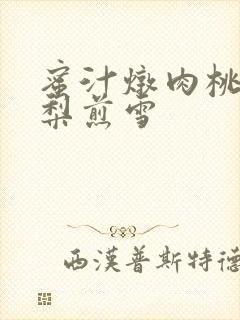 蜜汁燉肉桃
梨煎雪
西漢普斯特德